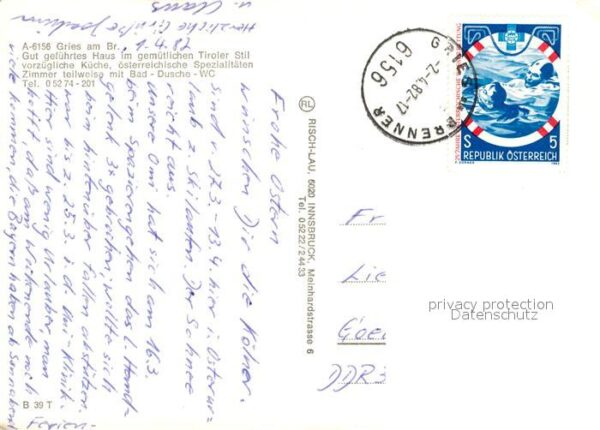 A-6156 Gries am Br.
Gut geführtes Haus im gemütlichen Tiroler Stil
vorzügliche Küche, österreichische Spezialitäten
Zimmer teilweise mit Bad - Dusche - WC
Tel. 0 52 74 - 201
1.4.82
Frohe Ostern
wünschen Dir die Kölner.
sind v. 27.3. - 13.4. hier i. Österur=
laub z. Skilaufen. Der Schnee
reicht aus.
Unsere Omi hat sich am 16.3.
beim Spazierengehen das l. Hand-
gelenk 3x gebrochen, wollte sich
beim hintenüber fallen abstützen.
war bis z. 25.3. i. d. Uni-Klinik.
Hier sind wenig Urlauber, man
hofft, daß am Wochenende noch
viele kommen, die Bayern haben ab Sonnabend
Ferien-
Herzliche Grüße Joachim
u. Claus
B 39 T
RL
RISCH-LAU, 6020 INNSBRUCK, Meinhardstrasse 6
Tel. 0 52 22 / 2 44 33
GRIES BRENNER
6156
-2.-4.82-17
S 5
REPUBLIK ÖSTERREICH
Fr
Lie
Goe
DDR 3
privacy protection
Datenschutz